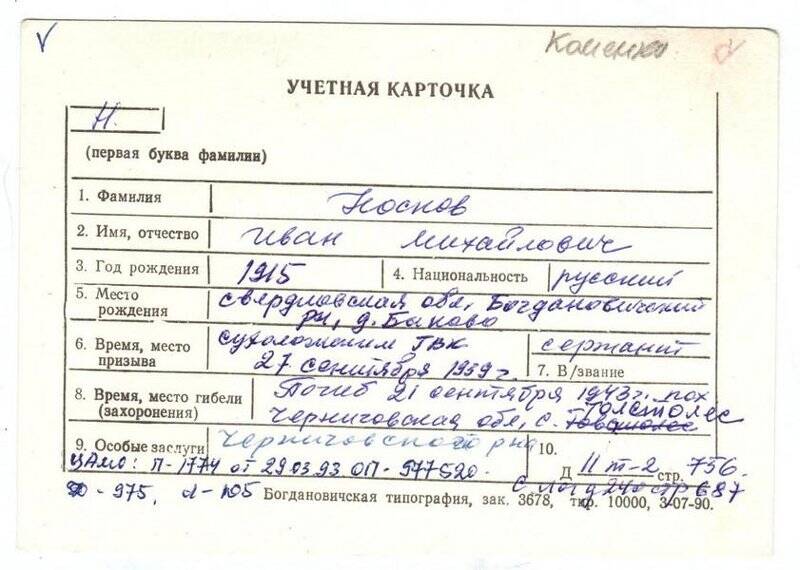 УЧЕТНАЯ КАРТОЧКА
Н.
(первая буква фамилии)
1. Фамилия Носков
2. Имя, отчество Иван Михайлович
3. Год рождения 1915 4. Национальность русский
5. Место рождения Свердловская обл, Богдановичский
рн, д. Быково
6. Время, место призыва Сухоложским ГВК
27 сентября 1939 г.
7. В/звание сержант
8. Время, место гибели (захоронения) Погиб 21 сентября 1943 г. пох
Черниговская обл, с. Толстолес
Черниговского рна
9. Особые заслуги
10.
ЦАМО: П-1774 от 29.03.93. ОП-977520.
Д II т-2 стр. 756.
975, л-105
стр 687
Богдановичская типография, зак. 3678, тир. 10000, 3-07-90.